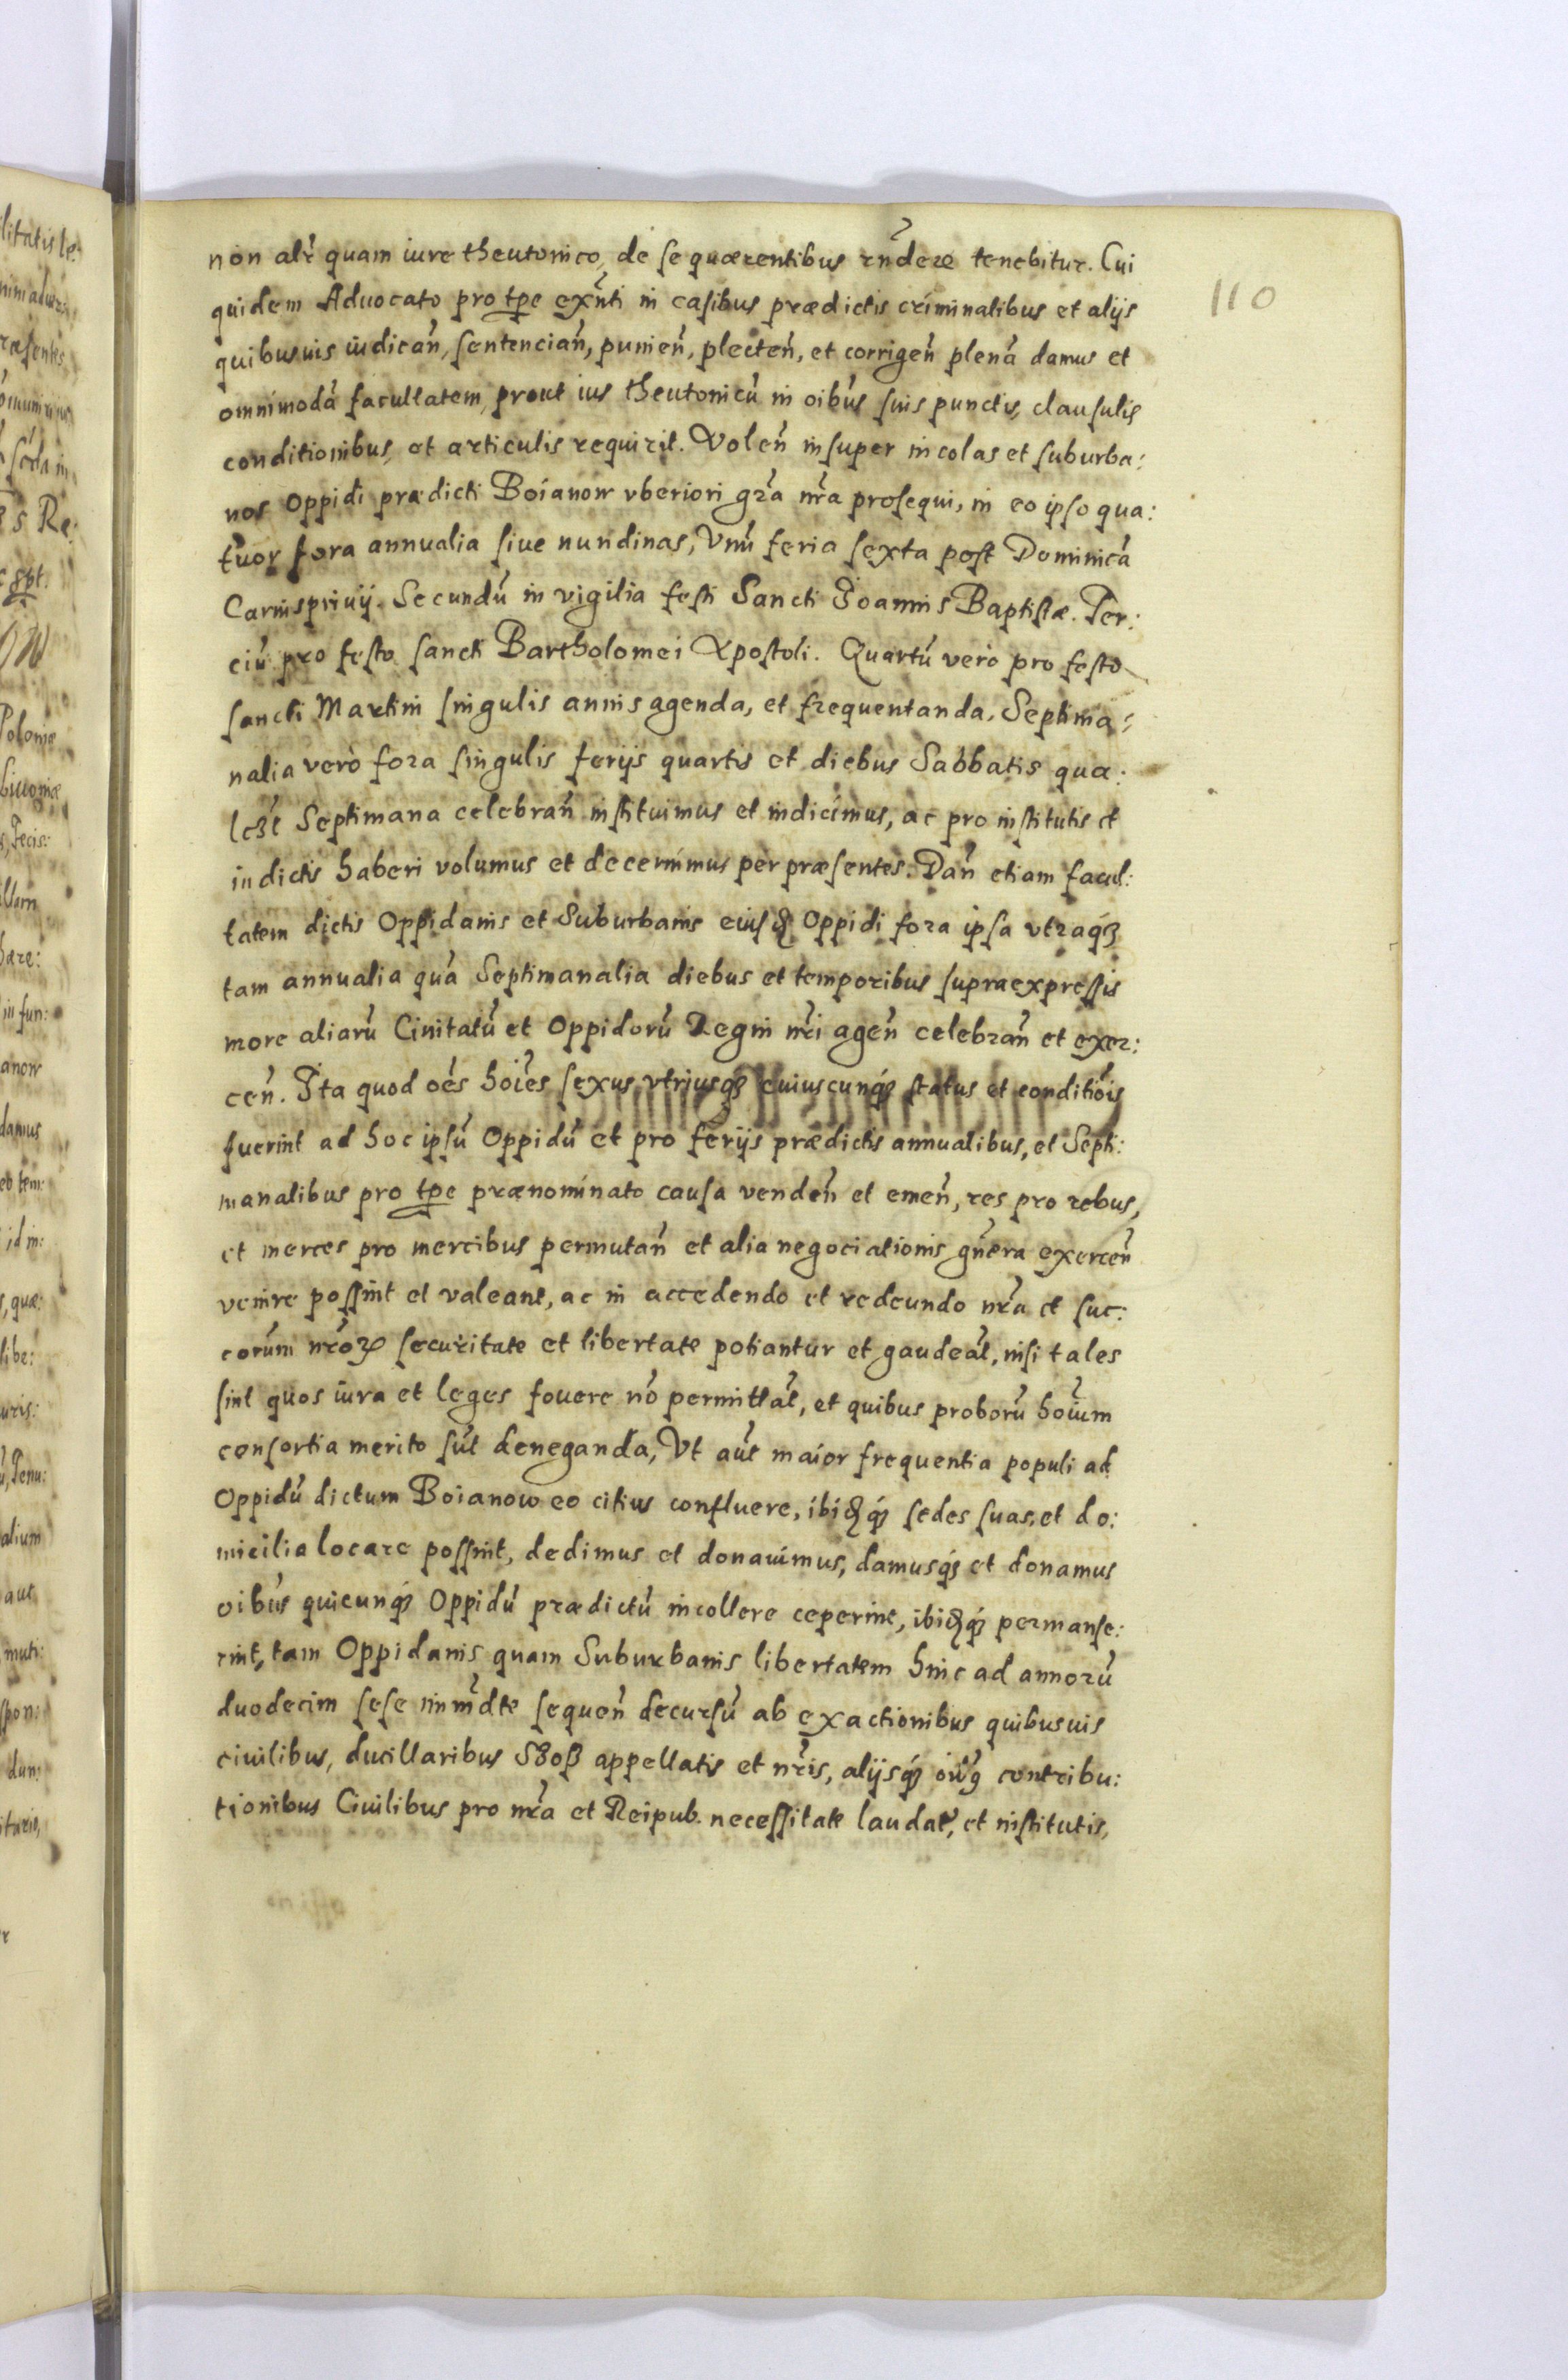 110
non alr̃ quam iure theutonico, de se quærentibus rñdere tenebitur. Cui
quidem Aduocato pro tꝑe exñti in casibus prædictis criminalibus et alijs
quibusuis iudicañ, sentenciañ, punieñ, plecteñ, et corrigeñ plenã damus et
omnimodã facultatem, prout ius theutonicũ in oĩbus suis punctis, clausulis
conditionibus, et articulis requirit. Voleñ insuper incolas et suburba:
nos oppidi prædicti Boianow vberiori gr̃a nr̃a prosequi, in eo ipso qua:
tuor fora annualia siue nundinas, Vnũ feria sexta post Dominicã
Carnispriuij. Secundũ in vigilia festi Sancti Joannis Baptistæ. Ter:
ciũ pro festo sancti Bartholomei Apostoli. Quartũ verò pro festo
sancti Martini singulis annis agenda, et frequentanda. Septima:
nalia verò fora singulis ferijs quartis et diebus Sabbatis qua:
lꝫt Septimana celebrañ instituimus et indicimus, ac pro institutis et
indictis haberi volumus et decernimus per præsentes. Dañ etiam facul:
tatem dictis Oppidanis et Suburbanis eiusꝺ Oppidi fora ipsa vtraqꝫ
tam annualia quã Septimanalia diebus et temporibus supraexpressis
more aliarũ Ciuitatũ et Oppidorũ Regni nr̃i ageñ celebrañ et exer:
ceñ. Ita quod oẽs hoĩes sexus vtriusqꝫ cuiuscunqꝫ status et conditiõis
fuerint ad hoc ipsũ Oppidũ et pro ferijs prædictis annualibus, et Septi:
manalibus pro tꝑe prænominato causa vendeñ et emeñ, res pro rebus,
et merces pro mercibus permutañ et alia negociationis gñera exerceñ
venire possint et valeant, ac in accedendo et redeundo nr̃a et suc:
corum nr̃oꝝ securitate et libertate potiantur et gaudeãt, nisi tales
sint quos iura et leges fouere nõ permittãt, et quibus proborũ hoĩum
consortia merito sũt deneganda, Vt aũt maior frequentia populi ad
Oppidũ dictum Boianow eo citius confluere, ibiꝺqꝫ sedes suas, et do:
micilia locare possint, dedimus et donauimus, damusqꝫ et donamus
oĩbus quicunqꝫ Oppidũ prædictũ incollere ceperint, ibiꝺqꝫ permanse:
rint, tam Oppidanis quam Suburbanis libertatem hinc ad annorũ
duodecim sese iñmdte sequeñ decursũ ab exactionibus quibusuis
ciuilibus, ducillaribus Sꝫoß appellatis et nr̃is, alijsqꝫ oĩbꝰ contribu:
tionibus Ciuilibus pro nr̃a et Reipub. necessitate laudat̃, et institutis,